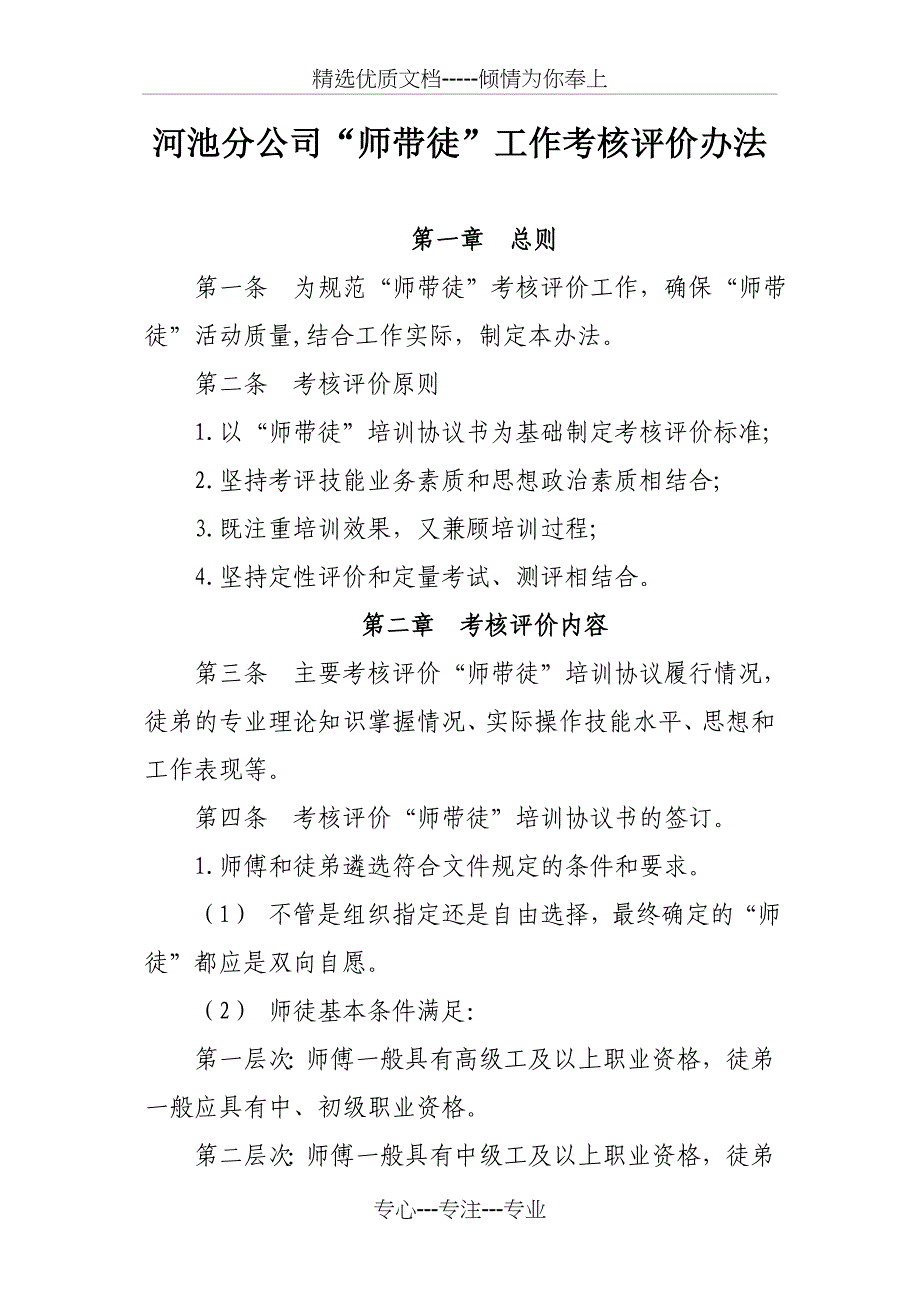 精选优质文档-----倾情为你奉上
河池分公司“师带徒”工作考核评价办法
第一章　总则
第一条　为规范“师带徒”考核评价工作，确保“师带
徒”活动质量,结合工作实际，制定本办法。
第二条　考核评价原则
1.以“师带徒”培训协议书为基础制定考核评价标准；
2.坚持考评技能业务素质和思想政治素质相结合；
3.既注重培训效果，又兼顾培训过程；
4.坚持定性评价和定量考试、测评相结合。
第二章　考核评价内容
第三条　主要考核评价“师带徒”培训协议履行情况，
徒弟的专业理论知识掌握情况、实际操作技能水平、思想和
工作表现等。
第四条　考核评价“师带徒”培训协议书的签订。
1.师傅和徒弟遴选符合文件规定的条件和要求。
（1） 不管是组织指定还是自由选择，最终确定的“师
徒”都应是双向自愿。
（2） 师徒基本条件满足：
第一层次：师傅一般具有高级工及以上职业资格，徒弟
一般应具有中、初级职业资格。
第二层次：师傅一般具有中级工及以上职业资格，徒弟
专心---专注---专业